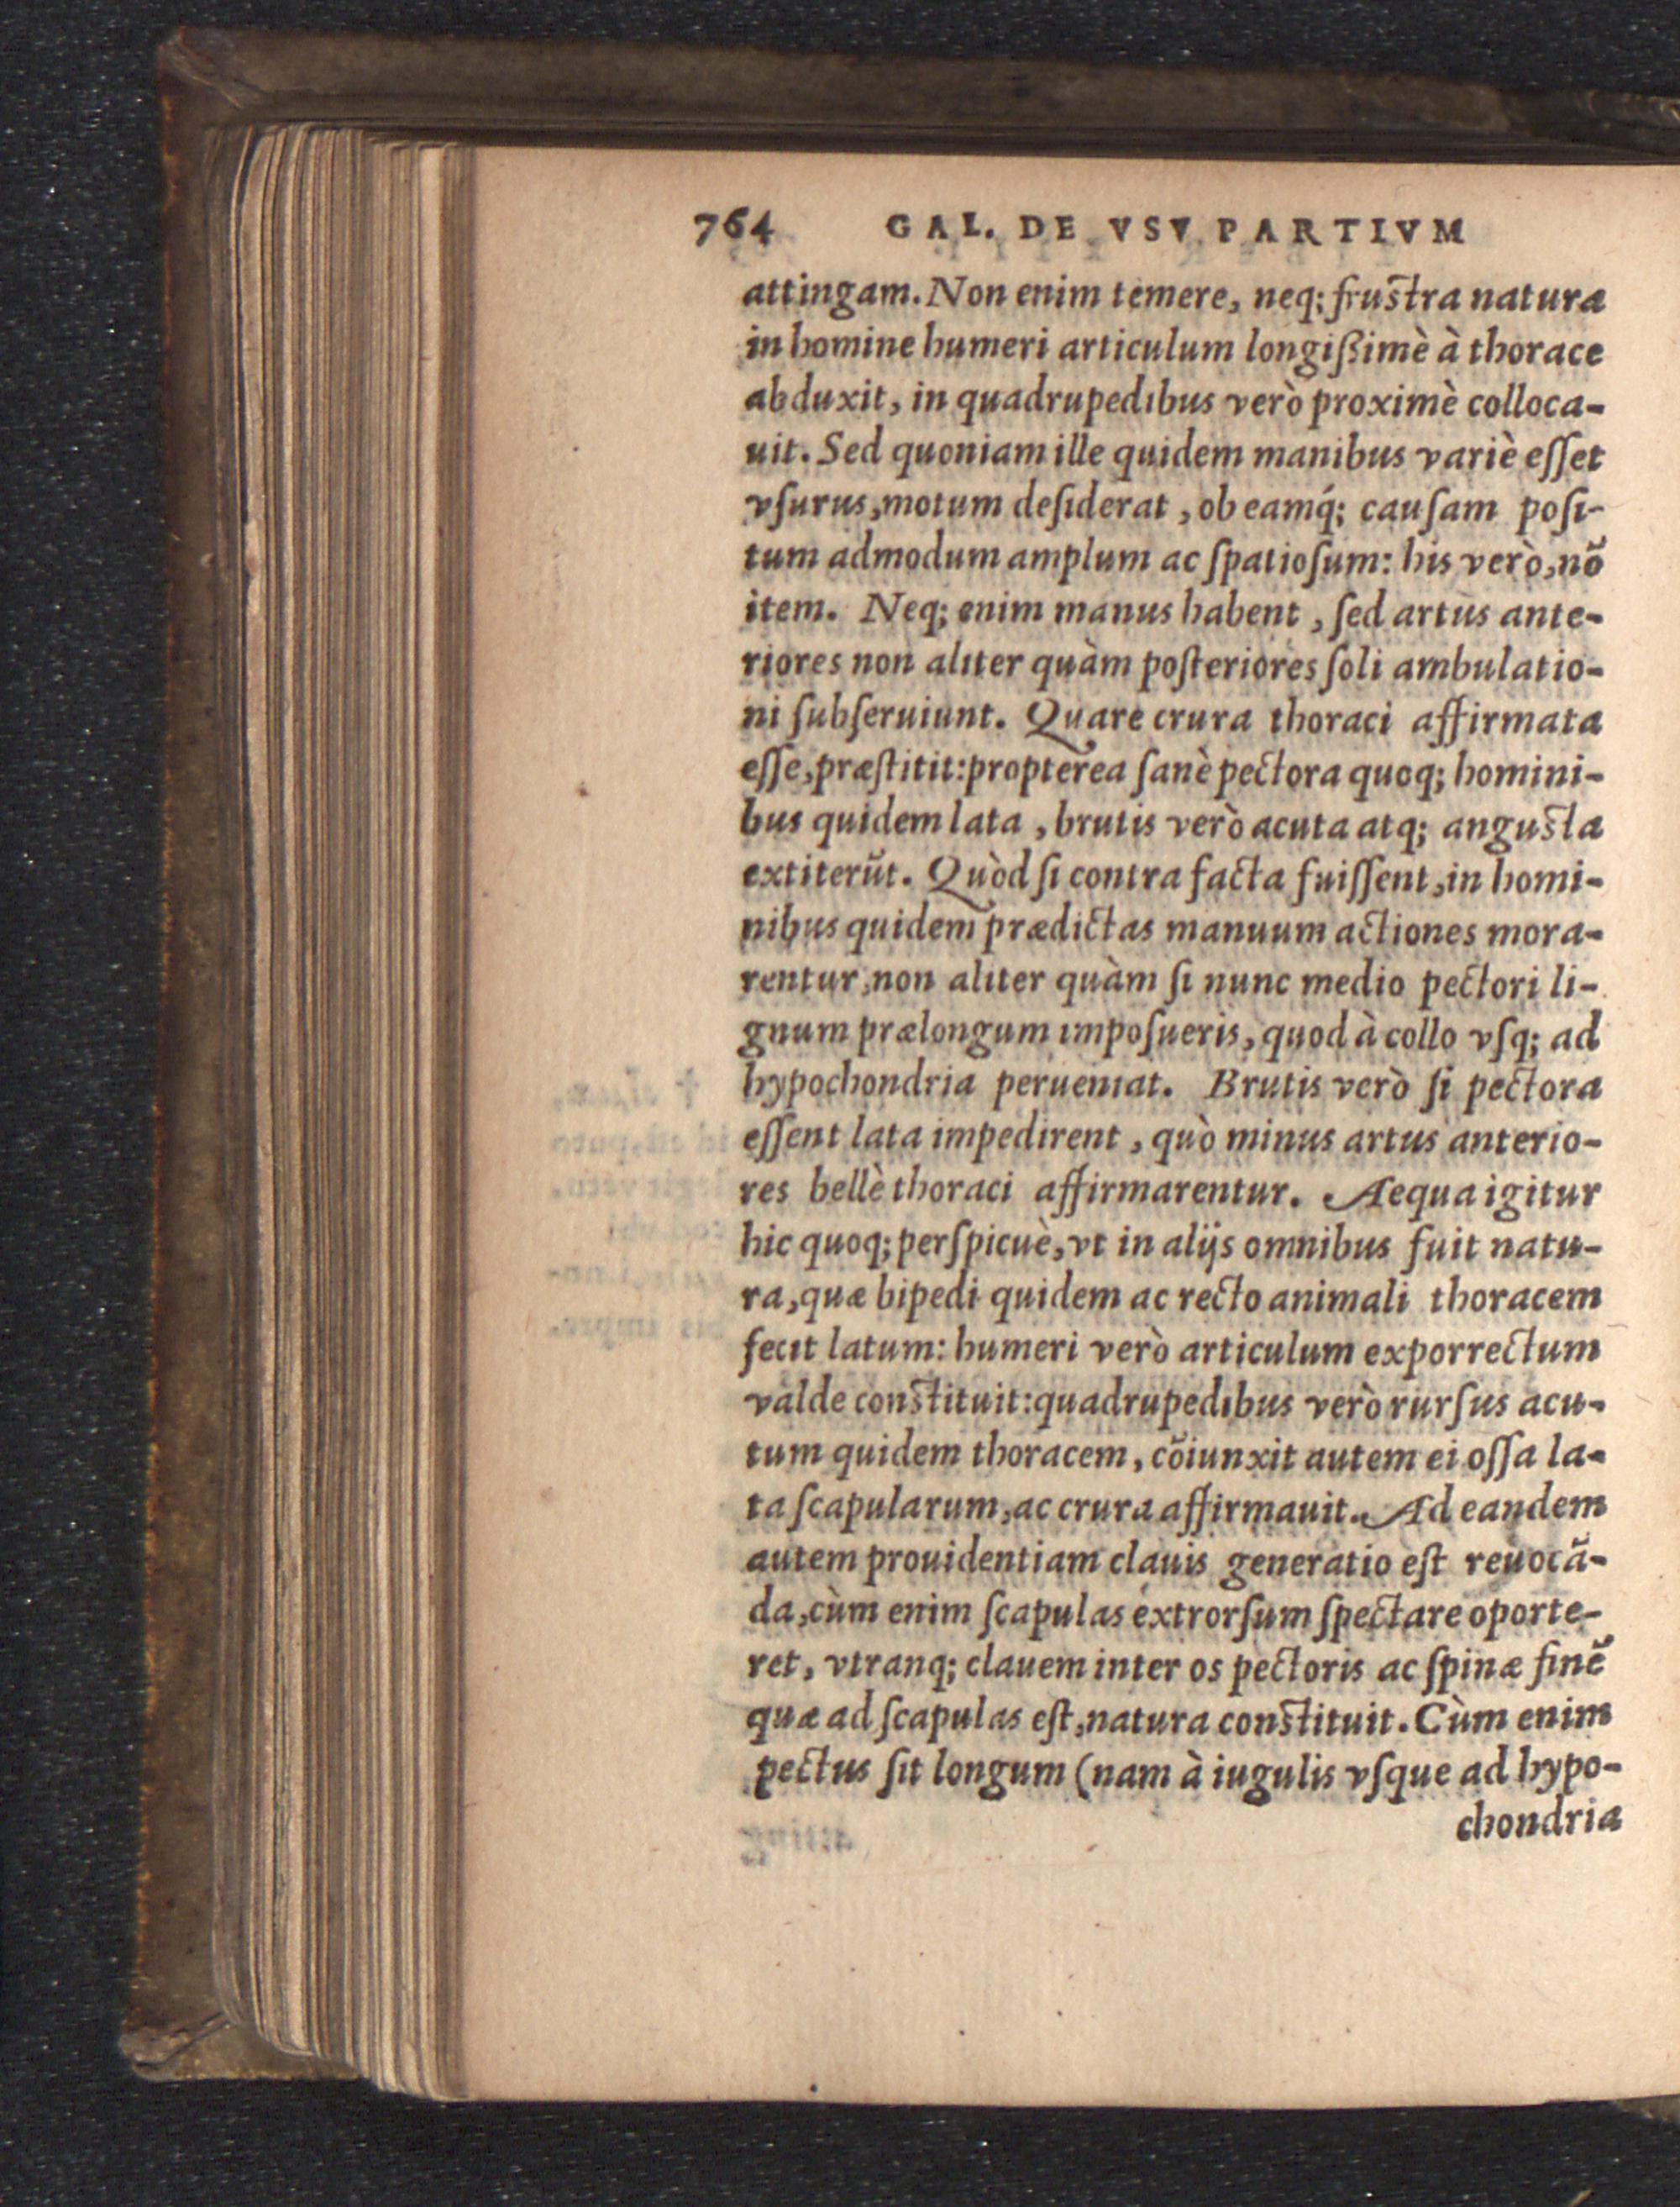 764 GAL. DE VSV PARTIVM
attingam. Non enim temere, neq; frustra natura
in homine humeri articulum longißimè à thorace
abduxit, in quadrupedibus verò proximè colloca-
uit. Sed quoniam ille quidem manibus variè eſſet
vſurus, motum deſiderat, ob eamq́; cauſam poſi-
tum admodum amplum ac ſpatioſum: his verò, nō
item. Neq; enim manus habent, ſed artus ante-
riores non aliter quàm poſteriores ſoli ambulatio-
ni ſubſeruiunt. Quare crura thoraci affirmata
eſſe, præſtitit: propterea ſanè pectora quoq; homini-
bus quidem lata, brutis verò acuta atq; angusta
extiterūt. Quòd ſi contra facta fuiſſent, in homi-
nibus quidem prædictas manuum actiones mora-
rentur, non aliter quàm ſi nunc medio pectori li-
gnum prælongum impoſueris, quod à collo vſq; ad
hypochondria perueniat. Brutis verò ſi pectora
eſſent lata impedirent, quò minus artus anterio-
res bellè thoraci affirmarentur. Aequa igitur
hic quoq; perſpicuè, vt in alijs omnibus fuit natu-
ra, quæ bipedi quidem ac recto animali thoracem
fecit latum: humeri verò articulum exporrectum
valde constituit: quadrupedibus verò rurſus acu-
tum quidem thoracem, cōiunxit autem ei oſſa la-
ta ſcapularum, ac crura affirmauit. Ad eandem
autem prouidentiam clauis generatio eſt reuocā-
da, cùm enim ſcapulas extrorſum ſpectare oporte-
ret, vtranq; clauem inter os pectoris ac ſpinæ finē
quæ ad ſcapulas eſt, natura constituit. Cùm enim
pectus ſit longum (nam à iugulis vſque ad hypo-
chondria